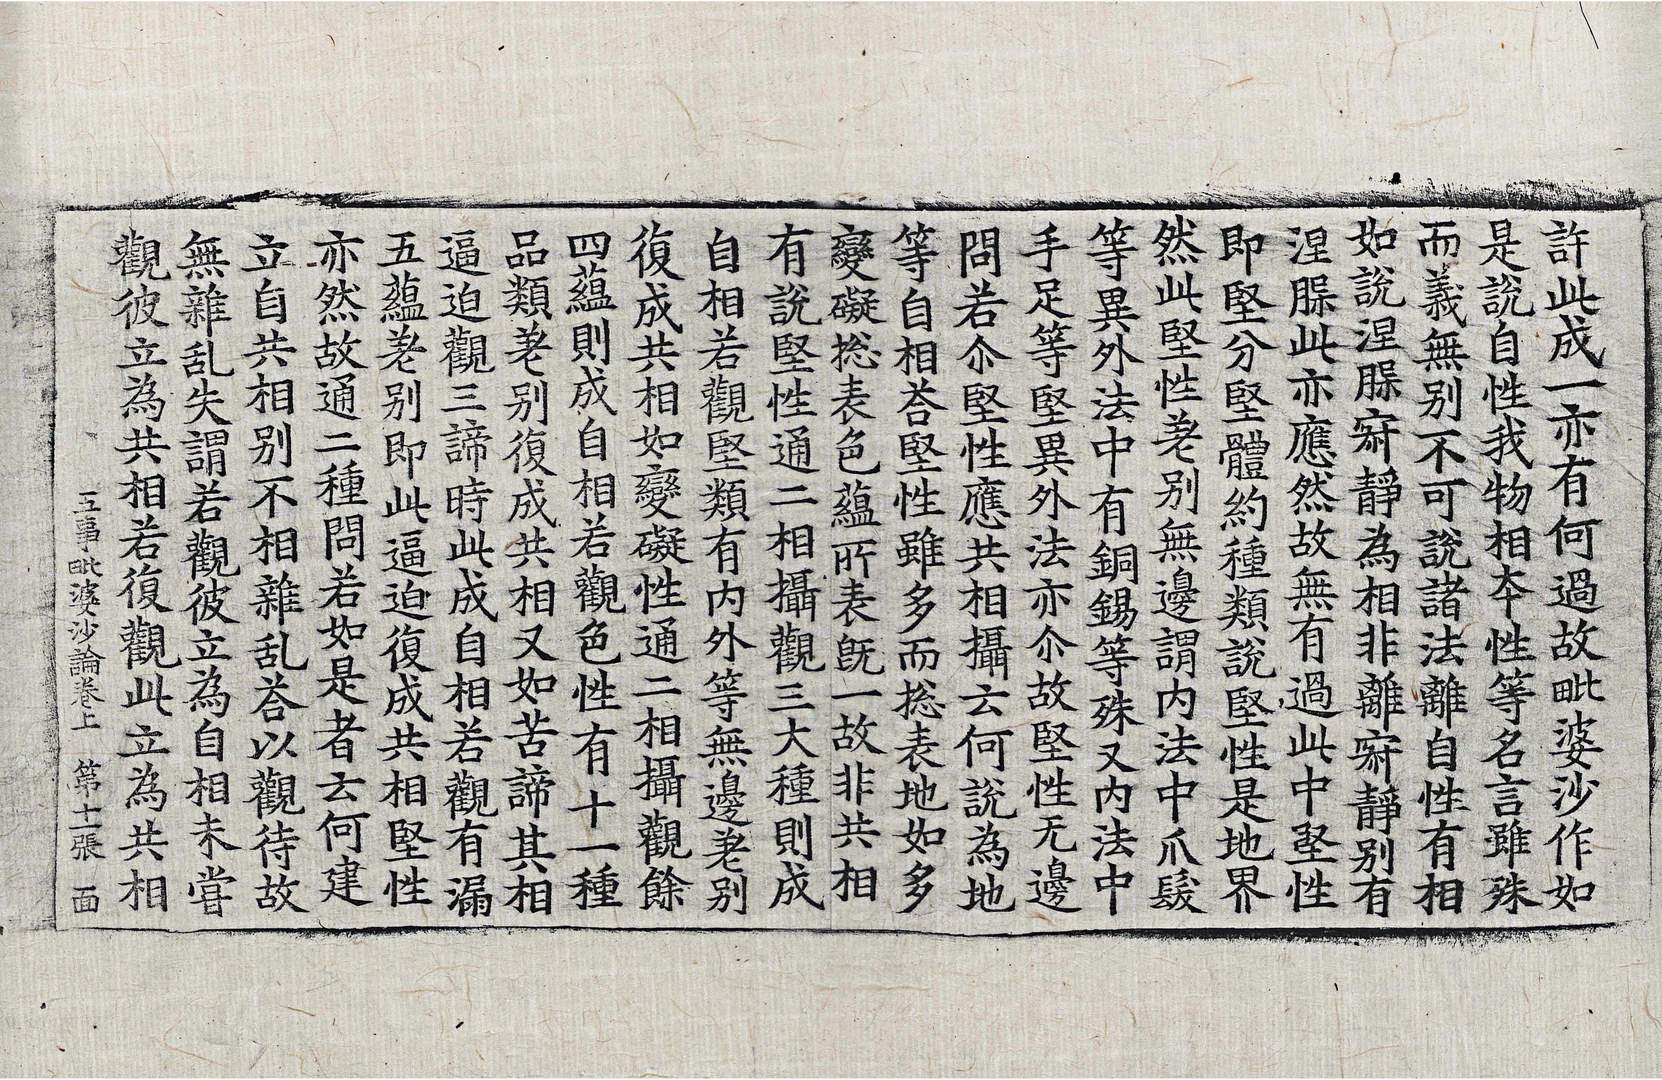 許此成一亦有何過故毗婆沙作如
是說自性我物相本性等名言雖殊
而義無別不可說諸法離自性有相
如說涅脲㝛靜為相非離㝛靜別有
涅脲此亦應然故無有過此中堅性
即堅分堅體約種類說堅性是地界
然此堅性差別無邊謂內法中爪髮
等異外法中有銅錫等殊又內法中
手足等堅異外法亦尒故堅性无邊
問若尒堅性應共相攝云何說為地
等自相荅堅性雖多而捴表地如多
變礙捴表色蘊所表旣一故非共相
有說堅性通二相攝觀三大種則成
自相若觀堅類有內外等無邊差別
復成共相如變礙性通二相攝觀餘
四蘊則成自相若觀色性有十一種
品類差別復成共相又如苦諦其相
逼迫觀三諦時此成自相若觀有漏
五蘊差別即此逼迫復成共相堅性
亦然故通二種問若如是者云何建
立自共相別不相雜乱荅以觀待故
無雜乱失謂若觀彼立為自相未嘗
觀彼立為共相若復觀此立為共相
五事毗婆沙論卷上 第十一張 面